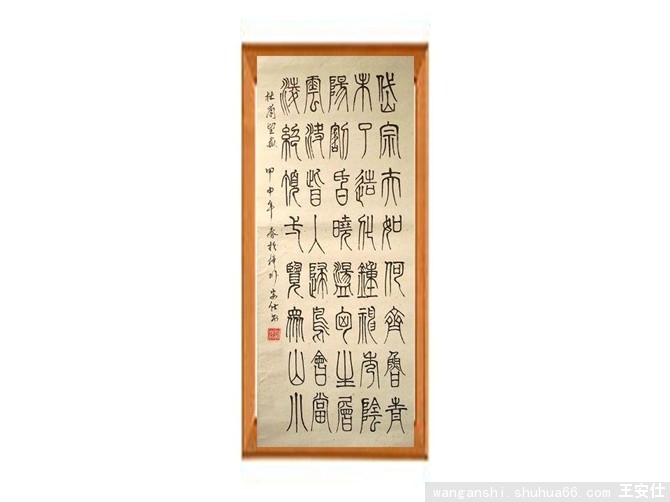 岱宗夫如何齊魯青
未了造化鍾神秀陰
陽割昏曉盪匈生層
雲決眥入歸鳥會當
凌絕頂弌覽眾山小
杜甫望嶽 甲申年 春於 安仕書
wanganshi.shuhua66.com 王安仕